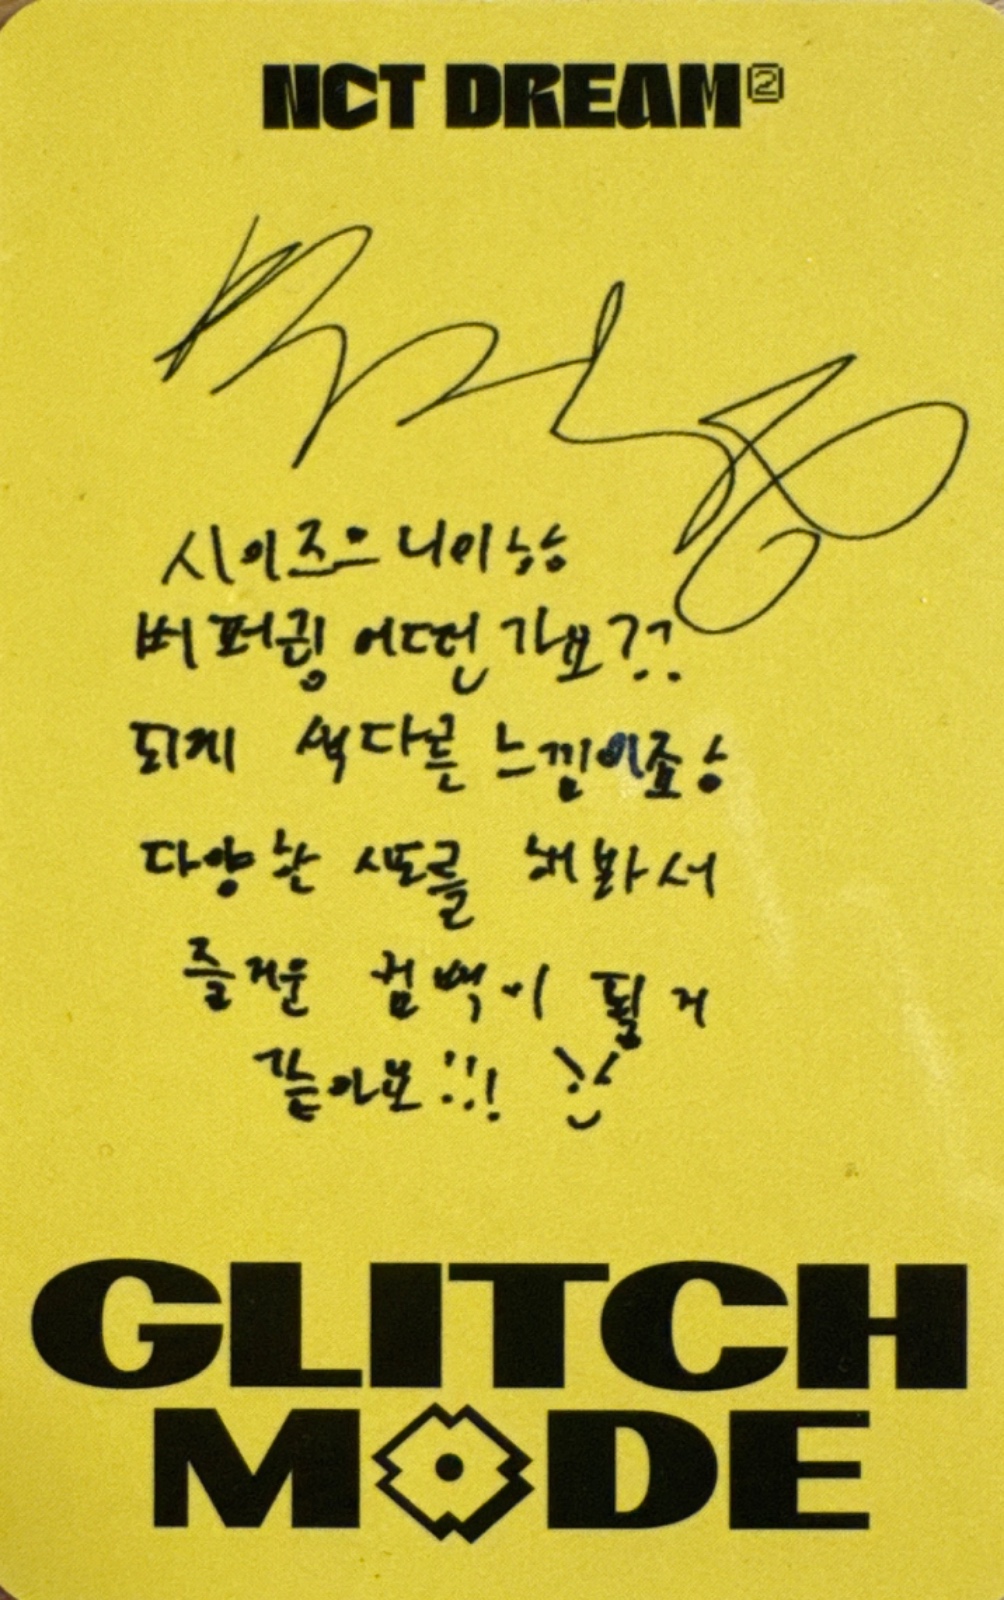 NCT DREAM②
시이즈으니이ㅎㅎ
버퍼링 어떤가요??
되게 색다른 느낌이죠ㅎ
다양한 시도를 해봐서
즐거운 컴백이 될거
같아요!!! :)
GLITCH
MODE